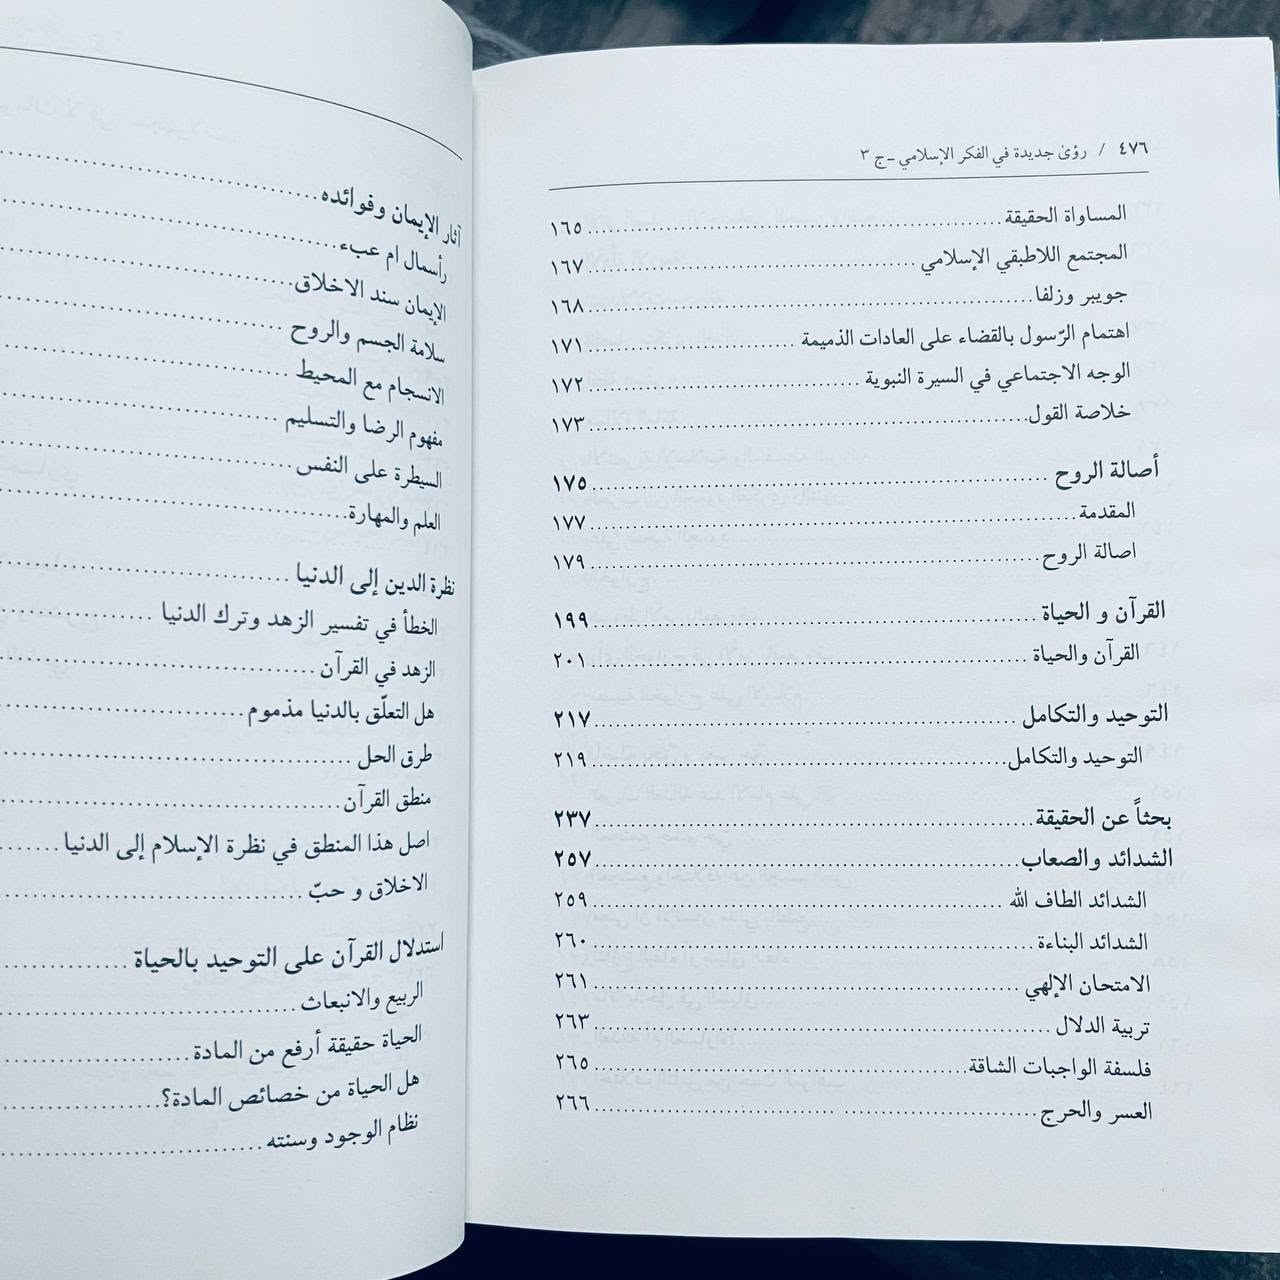 ٤٧٦ / رؤى جديدة في الفكر الإسلامي - ج ٣
المساواة الحقيقة ١٦٥
المجتمع اللاطبقي الإسلامي ١٦٧
جويبر وزلفا ١٦٨
اهتمام الرّسول بالقضاء على العادات الذميمة ١٧١
الوجه الاجتماعي في السيرة النبوية ١٧٢
خلاصة القول ١٧٣
أصالة الروح ١٧٥
المقدمة ١٧٧
اصالة الروح ١٧٩
القرآن و الحياة ١٩٩
القرآن والحياة ٢٠١
التوحيد والتكامل ٢١٧
التوحيد والتكامل ٢١٩
بحثاً عن الحقيقة ٢٣٧
الشدائد والصعاب ٢٥٧
الشدائد الطاف الله ٢٥٩
الشدائد البناءة ٢٦٠
الامتحان الإلهي ٢٦١
تربية الدلال ٢٦٣
فلسفة الواجبات الشاقة ٢٦٥
العسر والحرج ٢٦٦
آثار الإيمان وفوائده
رأسمال ام عبء
الإيمان سند الاخلاق
سلامة الجسم والروح
الانسجام مع المحيط
مفهوم الرضا والتسليم
السيطرة على النفس
العلم والمهارة
نظرة الدين إلى الدنيا
الخطأ في تفسير الزهد وترك الدنيا
الزهد في القرآن
هل التعلّق بالدنيا مذموم
طرق الحل
منطق القرآن
اصل هذا المنطق في نظرة الإسلام إلى الدنيا
الاخلاق و حبّ
استدلال القرآن على التوحيد بالحياة
الربيع والانبعاث
الحياة حقيقة أرفع من المادة
هل الحياة من خصائص المادة؟
نظام الوجود وسنته